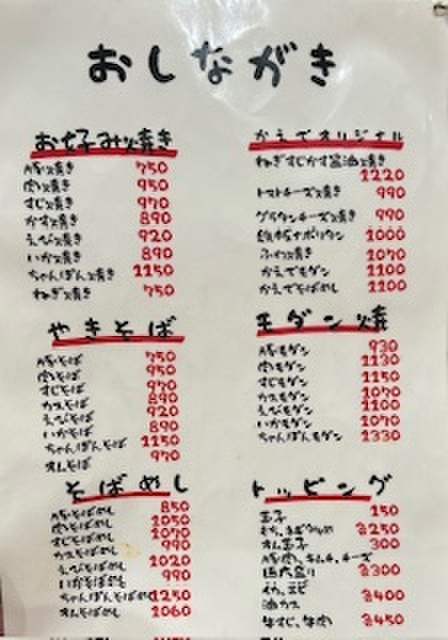 おしながき
お好み焼き
豚焼き 750
肉焼き 950
すじ焼き 970
かす焼き 890
えび焼き 920
いか焼き 890
ちゃんぽん焼き 1150
ねぎ焼き 750
やきそば
豚そば 750
肉そば 950
すじそば 970
カスそば 890
えびそば 920
いかそば 890
ちゃんぽんそば 1150
オムそば 970
そばめし
豚そばめし 850
肉そばめし 1050
すじそばめし 1070
カスそばめし 990
えびそばめし 1020
いかそばめし 990
ちゃんぽんそばめし 1250
オムそばめし 1060
かえでオリジナル
ねぎすじかす醤油焼き
1220
トマトチーズ焼き 990
グラタンチーズ焼き 990
鉄板ナポリタン 1000
ふわ焼き 1070
かえでモダン 1100
かえでそばめし 1100
モダン焼
豚モダン 930
肉モダン 1130
すじモダン 1150
カスモダン 1070
えびモダン 1100
いかモダン 1070
ちゃんぽんモダン 1330
トッピング
玉子 150
もち、ねぎ 各250
オム玉子 300
豚肉、キムチ、チーズ
麺大盛り 各300
イカ、エビ
油カス 各400
牛すじ、牛肉 各450